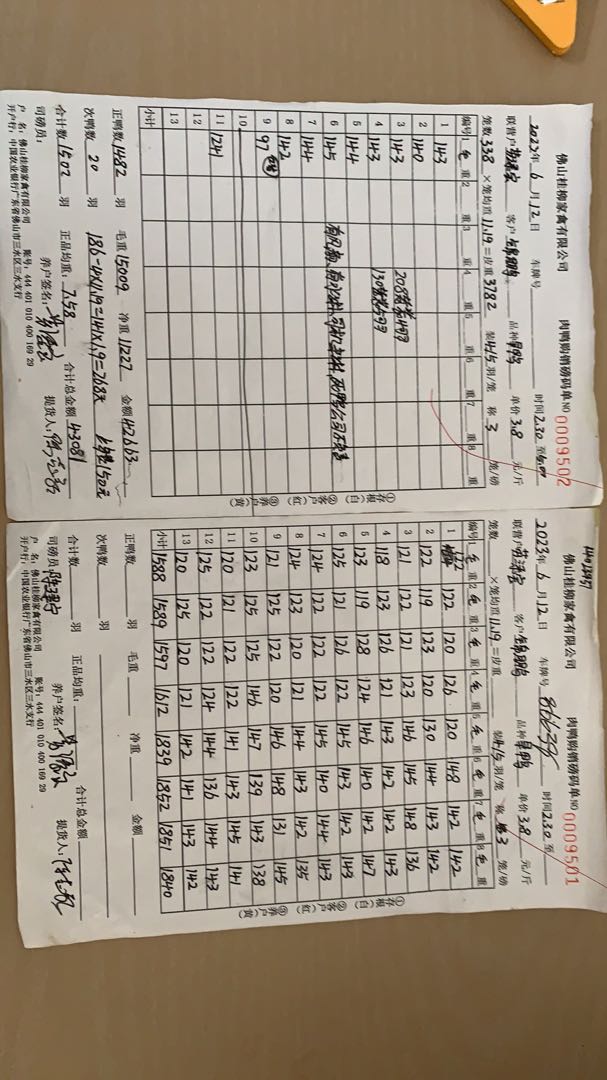 佛山桂柳家禽有限公司 肉鸭购销磅码单 NO 0009502
2023年 6 月 12 日 车牌号 时间 2.30 至
联营户 客户 品种 单价 3.8 元/斤
笼数 338 × 笼均重 11.19 = 皮重 3782 装 4.15 羽/笼 称 3 笼/磅
编号 重1 重2 重3 重4 重5 重6 重7 重8 重
1 143
2 140
3 143
4 143
5 144
6 145
7 144
8 142
9 97
10
11 1241
12
13
小计
正鸭数 1482 羽 毛重 15009 净重 11227 金额 42663
次鸭数 20 羽
合计数 1502 羽 正品均重: 7.58 合计总金额 43081
司磅员: 养户签名: 提货人:
户 名: 佛山桂柳家禽有限公司 账号: 444 401 010 400 169 29
开户行: 中国农业银行广东省佛山市三水区三水支行
①存根(白) ②客户(红) ③养户(黄)
佛山桂柳家禽有限公司 肉鸭购销磅码单 NO 0009501
2023年 6 月 12 日 车牌号 时间 2.30 至
联营户 客户 品种 单价 3.8 元/斤
笼数 × 笼均重 11.19 = 皮重 装 4.15 羽/笼 称 3 笼/磅
编号 重1 重2 重3 重4 重5 重6 重7 重8 重
1 122 122 120 126 120 148 142 142
2 122 119 123 120 130 144 143 142
3 121 122 121 123 146 145 148 136
4 118 123 126 121 143 142 142 143
5 123 119 128 124 146 140 142 147
6 125 121 126 122 145 143 142 143
7 124 122 122 122 145 140 144 143
8 124 123 120 121 144 143 142 135
9 121 125 122 120 146 148 131 145
10 123 125 125 146 147 139 143 138
11 120 121 122 122 141 143 145 141
12 125 122 122 124 144 136 144 143
13 120 125 120 121 142 141 143 142
小计 1588 1589 1597 1612 1839 1852 1851 1840
正鸭数 羽 毛重 净重 金额
次鸭数 羽
合计数 羽 正品均重: 合计总金额
司磅员 养户签名: 提货人:
户 名: 佛山桂柳家禽有限公司 账号: 444 401 010 400 169 29
开户行: 中国农业银行广东省佛山市三水区三水支行
①存根(白) ②客户(红) ③养户(黄)